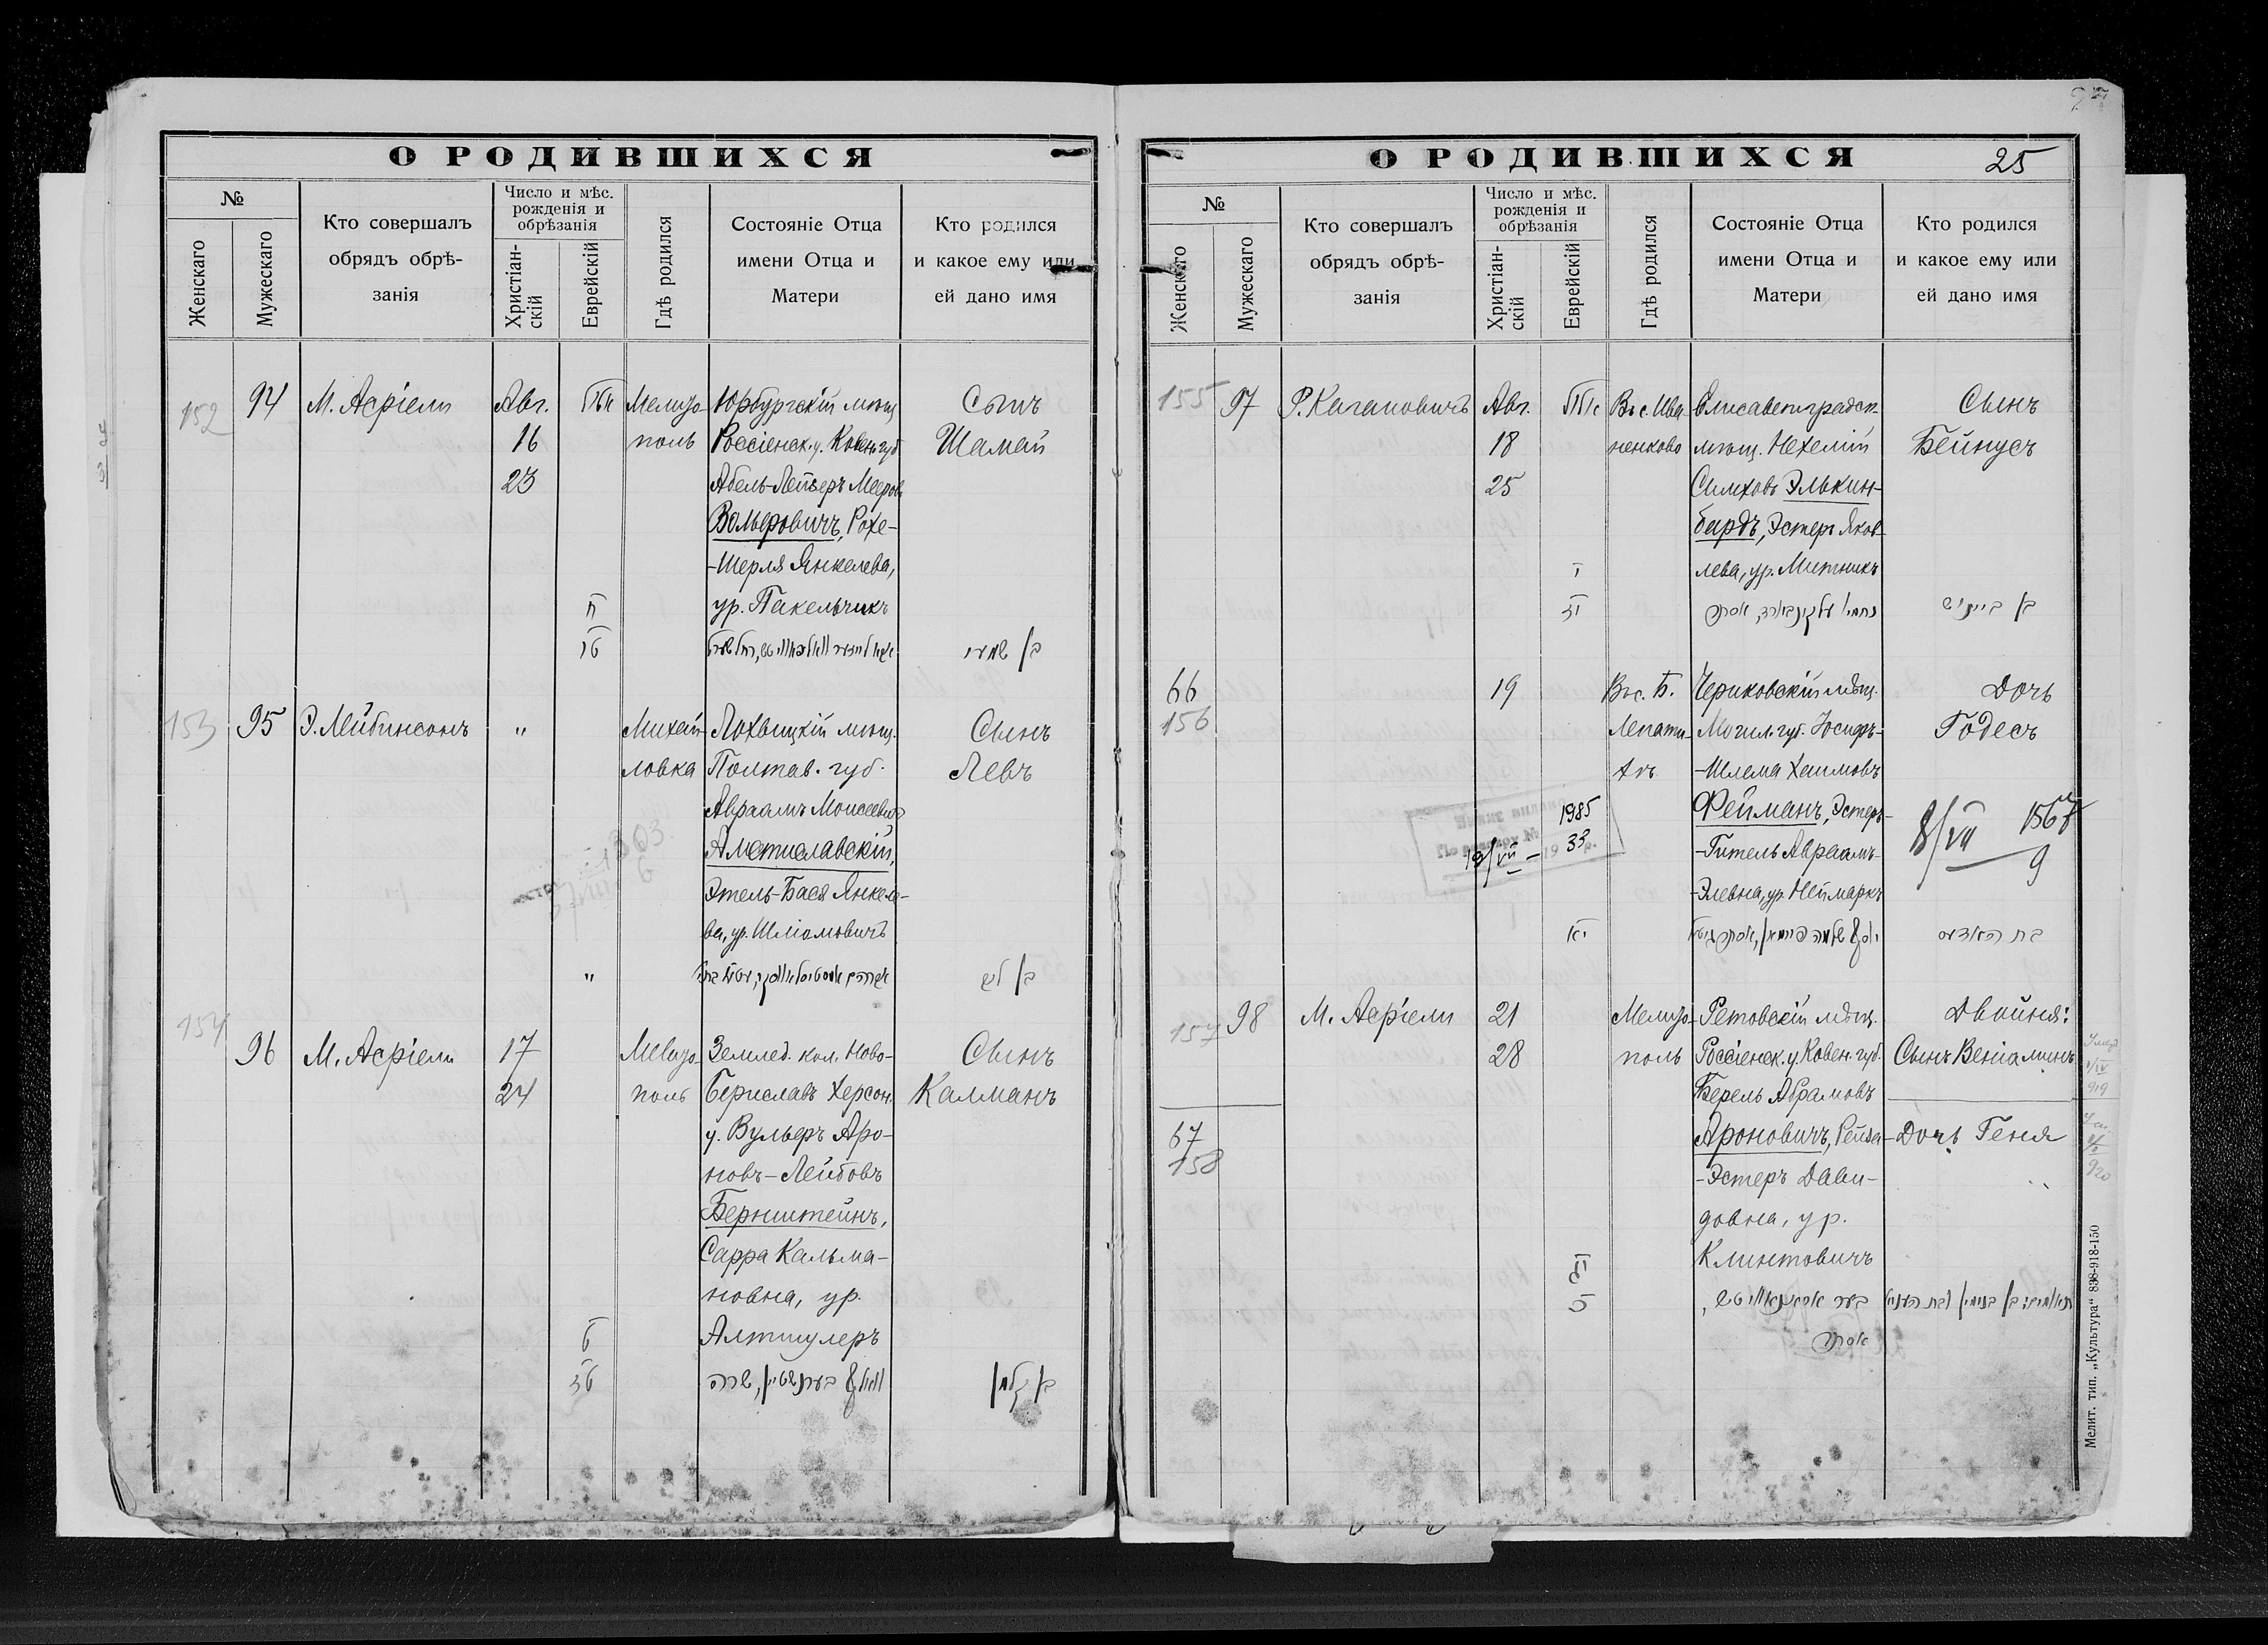 О РОДИВШИХСЯ
№
Женскаго
Мужескаго
Кто совершалъ
обрядъ обрѣ-
занія
Число и мѣс.
рожденія и
обрѣзанія
Христіан-
скій
Еврейскій
Гдѣ родился
Состояніе Отца
имени Отца и
Матери
Кто родился
и какое ему или
ей дано имя
152
94
М. Асріели
Авг.
16
23
Мелито-
поль
Юрбургскій мѣщ.
Россіенск. у. Ковен. губ.
Абель-Лейзеръ Мееров.
Вольеровичъ, Рохе-
-Шерля Янкелева,
ур. Пакельчикъ
Сынъ
Шамай
ח
טו
בן שמאי
153
95
Э. Лейбинсонъ
"
Михай-
ловка
Лохвицкій мѣщ.
Полтав. губ.
Авраамъ Моисеевъ
Амстиславскій,
Этель-Бася Янкеле-
ва, ур. Шліомовичъ
Сынъ
Левъ
"
בן לב
154
96
М. Асріели
17
24
Мелито-
поль
Землед. кол. Ново-
Бериславъ Херсон.
у. Вульеръ Аро-
новъ-Лейбовъ
Бернштейнъ,
Сарра Кальма-
новна, ур.
Алтшулеръ
Сынъ
Калманъ
ט
טז
וואלף בערנשטיין, שרה
בן קלמן
О РОДИВШИХСЯ
25
№
Женскаго
Мужескаго
Кто совершалъ
обрядъ обрѣ-
занія
Число и мѣс.
рожденія и
обрѣзанія
Христіан-
скій
Еврейскій
Гдѣ родился
Состояніе Отца
имени Отца и
Матери
Кто родился
и какое ему или
ей дано имя
155
97
Р. Кагановичъ
Авг.
18
25
Въ с. Ива
ненково
Елисаветградск.
мѣщ. Нехемій
Симховъ Элькин-
бардъ, Эстеръ Яков-
лева, ур. Митникъ
Сынъ
Бейнусъ
י
יז
נחמיה עלקינבארד, אסתר
בן ביינוש
66
156
19
Въ с. Б.
Лепати-
Чериковскій мѣщ.
Могил. губ. Іосифъ-
-Шлема Хаимовъ
Фейманъ, Эстеръ-
-Гитель Авраамъ-
-Элевна, ур. Неймаркъ
Дочь
Годесъ
1985
33
19/VII
8/VII 1567
9
יא
יוסף שלמה פיימאן, אסתר גיטל
בת האדעס
157
98
М. Асріели
21
28
Мелито-
поль
Ретовскій мѣщ.
Россіенск. у. Ковен. губ.
Берель Абрамовъ
Ароновичъ, Рейза-
-Эстеръ Дави-
довна, ур.
Клинтовичъ
Двойня:
Сынъ Веніаминъ
67
158
Дочь Геня
בער אראנאוויטש,
אסתר
תאומים: בן בנימין ובת העניא
Мелит. тип. „Культура“ 838-918-150